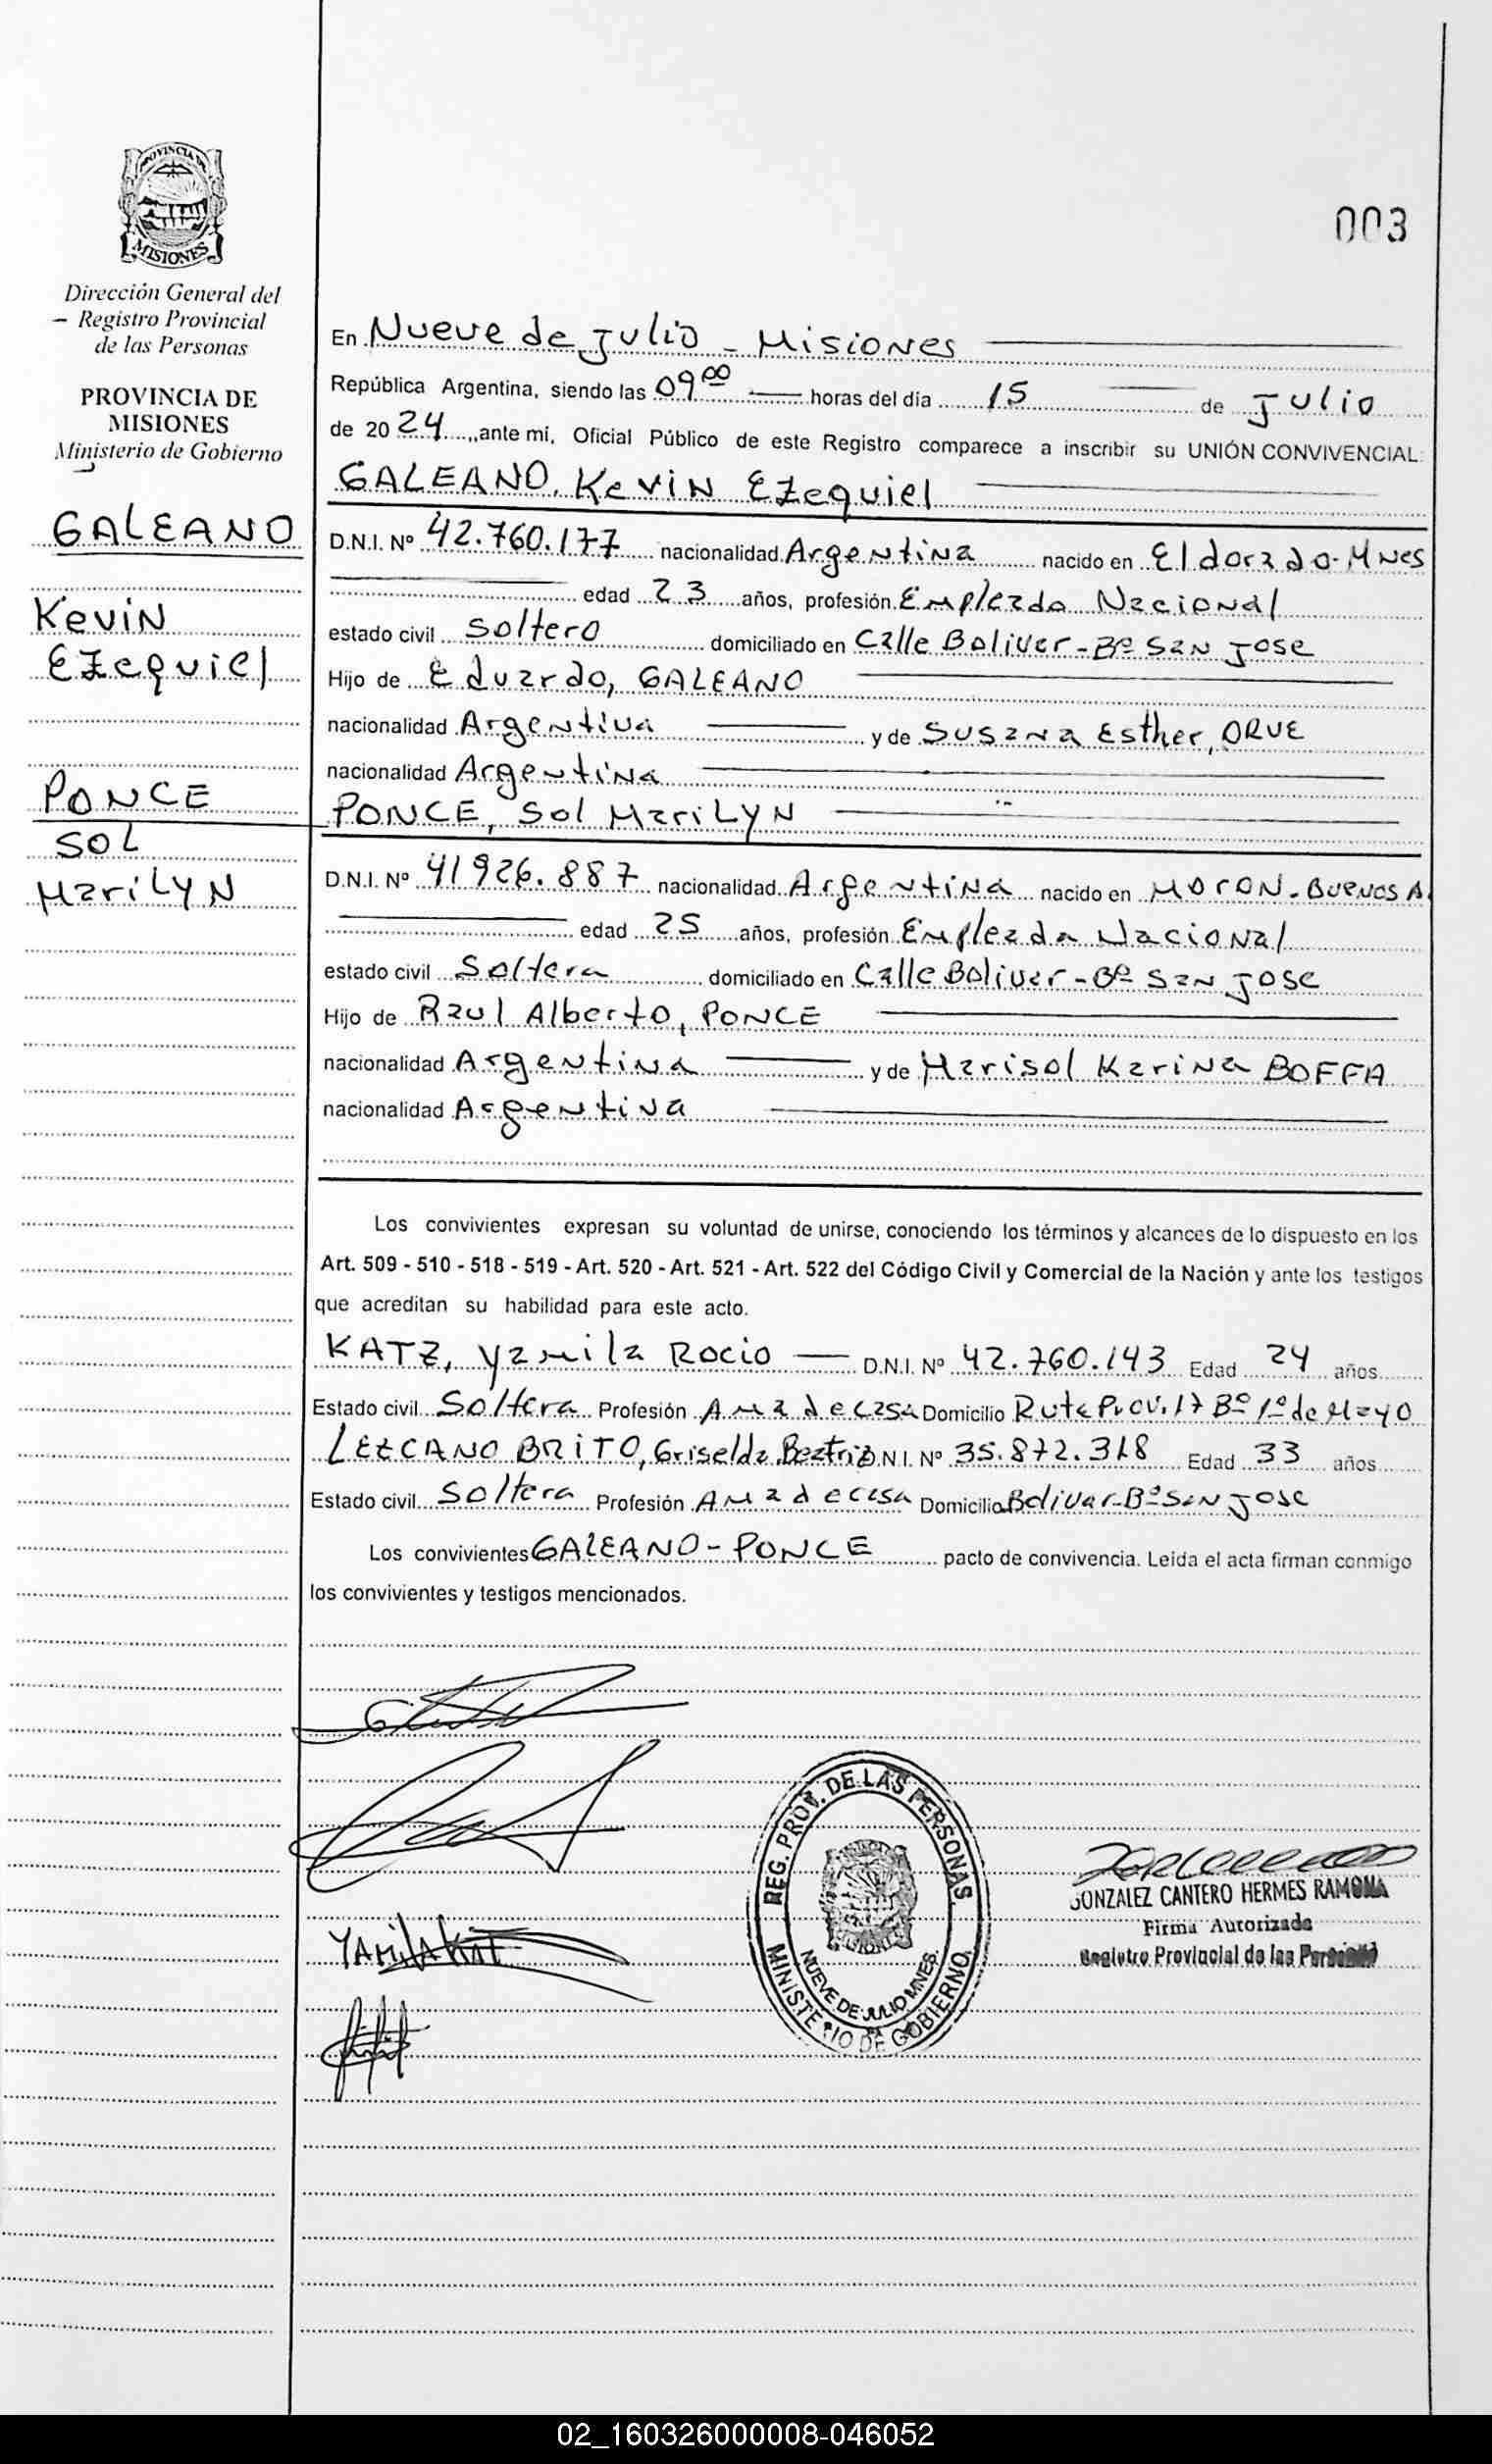 PROVINCIA DE
MISIONES
Dirección General del
Registro Provincial
de las Personas
PROVINCIA DE
MISIONES
Ministerio de Gobierno
GALEANO
Kevin
Ezequiel
PONCE
SOL
MariLyN
003
En Nueve de Julio - Misiones
República Argentina, siendo las 09 00 horas del día 15 de Julio
de 20 24 ,,ante mi, Oficial Público de este Registro comparece a inscribir su UNIÓN CONVIVENCIAL:
GALEANO, Kevin Ezequiel
D.N.I. Nº 42.760.177 nacionalidad Argentina nacido en Eldorado-Mnes
edad 23 años, profesión Empleado Nacional
estado civil Soltero domiciliado en Calle Boliver-Bº San Jose
Hijo de Eduardo, GALEANO
nacionalidad Argentina y de Susana Esther, ORUE
nacionalidad Argentina
PONCE, Sol MariLyN
D.N.I. Nº 41926.887 nacionalidad Argentina nacido en MORON-BUENOS A.
edad 25 años, profesión Empleada Nacional
estado civil Soltera domiciliado en Calle Boliver-Bº San Jose
Hijo de Raul Alberto, PONCE
nacionalidad Argentina y de Marisol Karina BOFFA
nacionalidad Argentina
Los convivientes expresan su voluntad de unirse, conociendo los términos y alcances de lo dispuesto en los
Art. 509 - 510 - 518 - 519 - Art. 520 - Art. 521 - Art. 522 del Código Civil y Comercial de la Nación y ante los testigos
que acreditan su habilidad para este acto.
KATZ, Yamila Rocio D.N.I. Nº 42.760.143 Edad 24 años
Estado civil Soltera Profesión Ama de casa Domicilio Ruta Prov. 17 Bº 1º de Mayo
LEZCANO BRITO, Griselda Beatriz D.N.I. Nº 35.872.318 Edad 33 años
Estado civil Soltera Profesión Ama de casa Domicilio Bolivar-Bº San Jose
Los convivientes GALEANO-PONCE pacto de convivencia. Leída el acta firman conmigo
los convivientes y testigos mencionados.
Yamila Kat
REG. PROV. DE LAS PERSONAS
NUEVE DE JULIO MNES.
MINISTERIO DE GOBIERNO
GONZALEZ CANTERO HERMES RAMONA
Firma Autorizada
Registro Provincial de las Personas
02_160326000008-046052